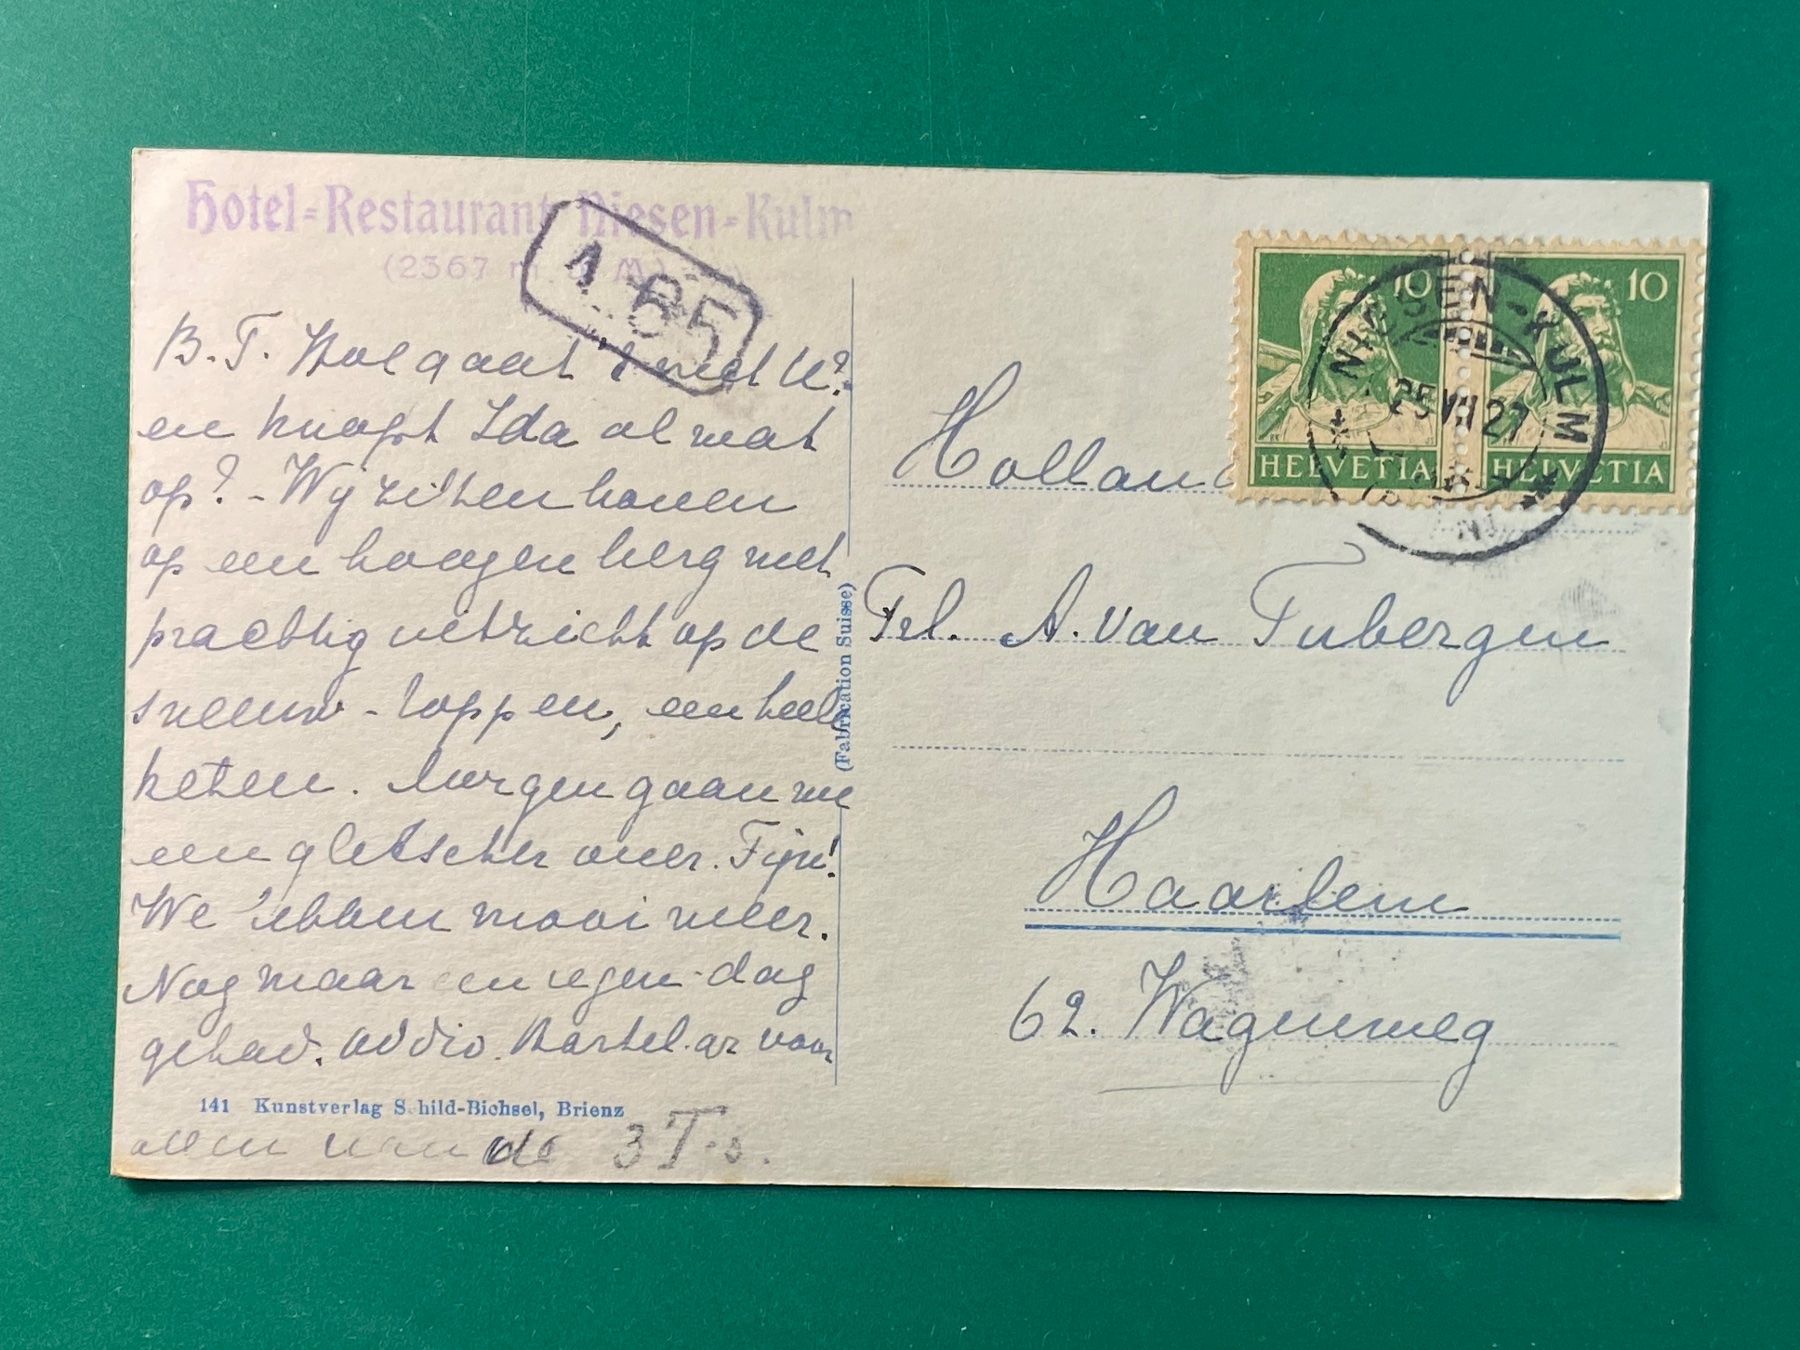 Hotel-Restaurant Niesen-Kulm
(2367 m
1 65
B.T. Hoe gaat 't met U?
en knapt Ida al wat
op? - Wij zitten boven
op een hoogen berg met
prachtig uitzicht op de
sneeuw-toppen, een heele
keten. Morgen gaan we
een gletscher over. Fijn!
We 'ebben mooi weer.
Nog maar een regen-dag
gehad. addio. Hartel. gr voor
allen van de 3 T.s.
141 Kunstverlag Schild-Bichsel, Brienz
(Fabrication Suisse)
10 10
HELVETIA HELVETIA
NIESEN-KULM
25 VII 27
Holland
Frl. A. van Tubergen
Haarlem
62. Wagenweg